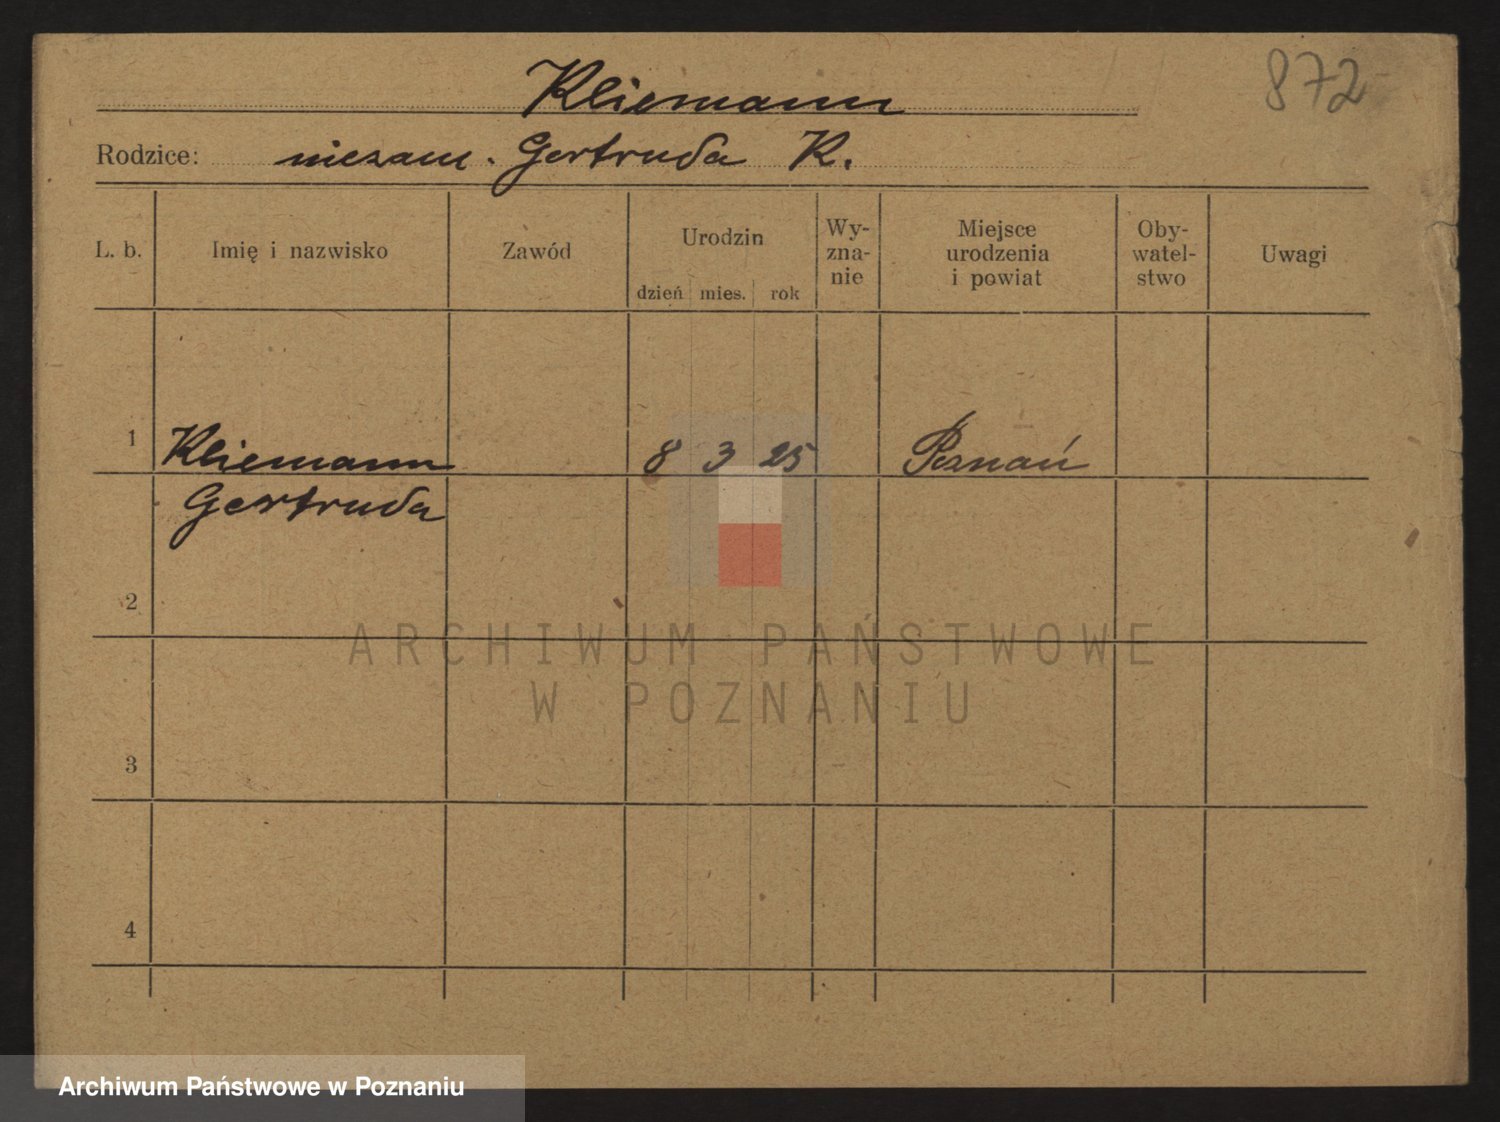 872
Kliemann
Rodzice: niezam. Gertruda K.
L. b. Imię i nazwisko Zawód Urodzin dzień mies. rok Wy-zna-nie Miejsce urodzenia i powiat Oby-watel-stwo Uwagi
1 Kliemann 8 3 25 Poznań
Gertruda
2
ARCHIWUM PAŃSTWOWE
W POZNANIU
3
4
Archiwum Państwowe w Poznaniu